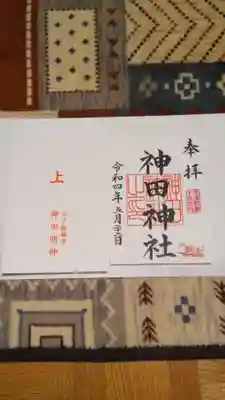 奉拝
神田神社
令和四年五月六日
上
江戸総鎮守
神田明神